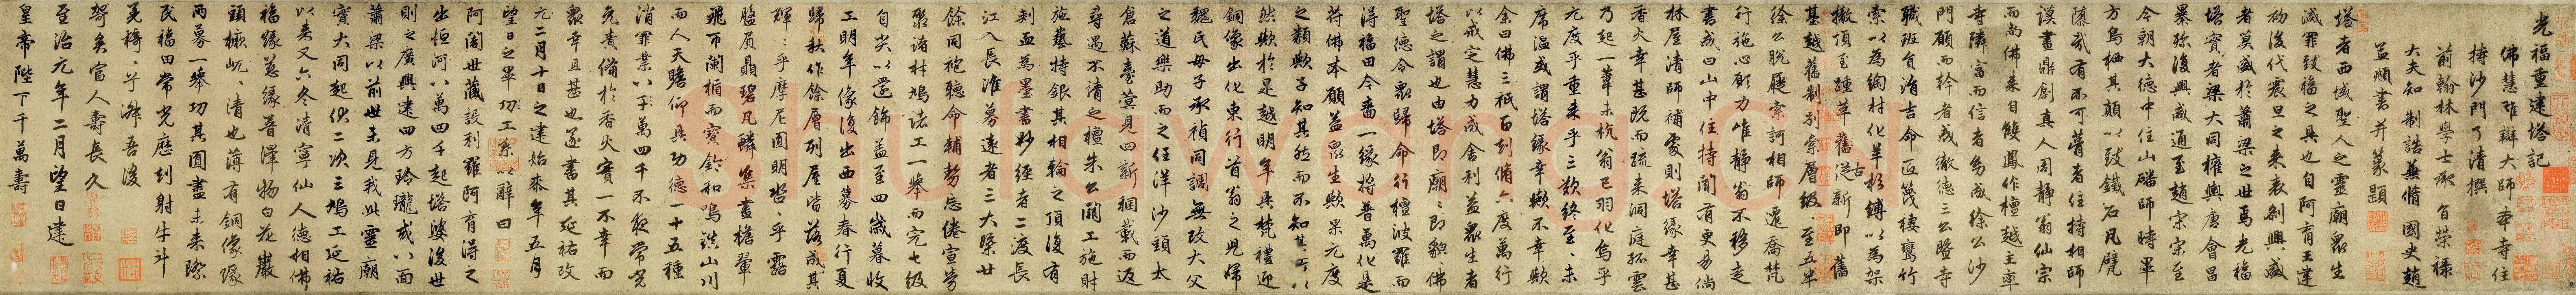 光福重建塔記
佛慧雄辯大師本寺住
持沙門了清撰
前翰林學士承旨榮祿
大夫知制誥兼脩國史趙
孟頫書并篆題
塔者西域聖人之靈廟眾生
滅罪致福之具也自阿育王建
初後代震旦之來表刹興盛
者莫盛於蕭梁之世焉光福
塔寶者梁大同權輿唐會昌
暴殄復興咸通至趙宗宗至
今朝大德中住山磻師時畢
方鳥栖其顛以致鐵石凡甓
隳弊有不可膂者住持相師
謨畫鼎創真人周靜翁仙宗
而尚佛來自雙鳳作檀越主率
寺隣富而信者劣成徐公沙
門願而幹者成徹德三公暨寺
職班負消吉命匠篾棲鸞竹
索以為綯材化羊杉縛以為架
基越舊制別索層級至五半
撤頂至踵草舊從新即舊
徐公脫屣索訶相師遷喬梵
行施心願力唯靜翁不移走
書戒曰山中住持閒有更易倘
林屋清師補處則塔緣幸甚
香火幸甚既而疏來洞庭孤雲
乃起一葦未杭翁已羽化烏乎
元度乎重來乎三歎終至未
席溫或謂塔緣幸歟不幸歟
余曰佛三祇百刧脩六度萬行
以戒定慧力成舍利益眾生者
塔之謂也由塔即廟廟即貌佛
聖德令眾歸命行檀波羅而
淂福田今嗇一緣將普萬化是
符佛本願益眾生歟果元度
之類歟子知其然而不知其所以
然歟於是越明年具梵禮迎
銅像出化東行首翁之兒婦
魏氏母子承禎同調無改大父
之道樂助而之任洋沙頭太
倉蘇臺蓂見四新稛載而返
尋遇不請之檀朱公關工施財
施藝特銀其相輪之頂復有
刺血為墨書妙經者二渡長
江入長淮募遠者三大檃廿
餘同袍聽命輔勢忘倦宣勞
聚諸材鳩諸工一舉而完七級
自尖以還飾益至四歲暮收
工明年像復出西募春行夏
歸秋作餘層列屋皆落成其
輝輝乎摩尼圓明呰呰乎露
盤屓贔碧凡鱗集畫檐翬
飛帀闌楯而寶鈴和鳴鎮山川
而人天瞻仰具功德一十五種
消罪業以于萬四千不夜常光
免責備於香火實一不幸而
眾幸且甚也遂書其延祐攻
元二月十日之建始來年五月
望日之畢功工系以辭曰
阿闍世藏設利羅阿育得之
出恒河八萬四千起塔婆後世
則之廣興建四方玲瓏或八面
蕭梁以前世未見我此靈廟
寶大同起伏二次三鳩工延祐
以來又六冬清寧仙人德相佛
福緣慈緣普澤物白花巖
頭橛屼屼清也薄有銅像緣
兩募一舉功其圓盡未來際
民福田常光歷刧射牛斗
美輪乎舜吾後
袈矣富人壽長久
至治元年二月望日建
皇帝陛下千萬壽